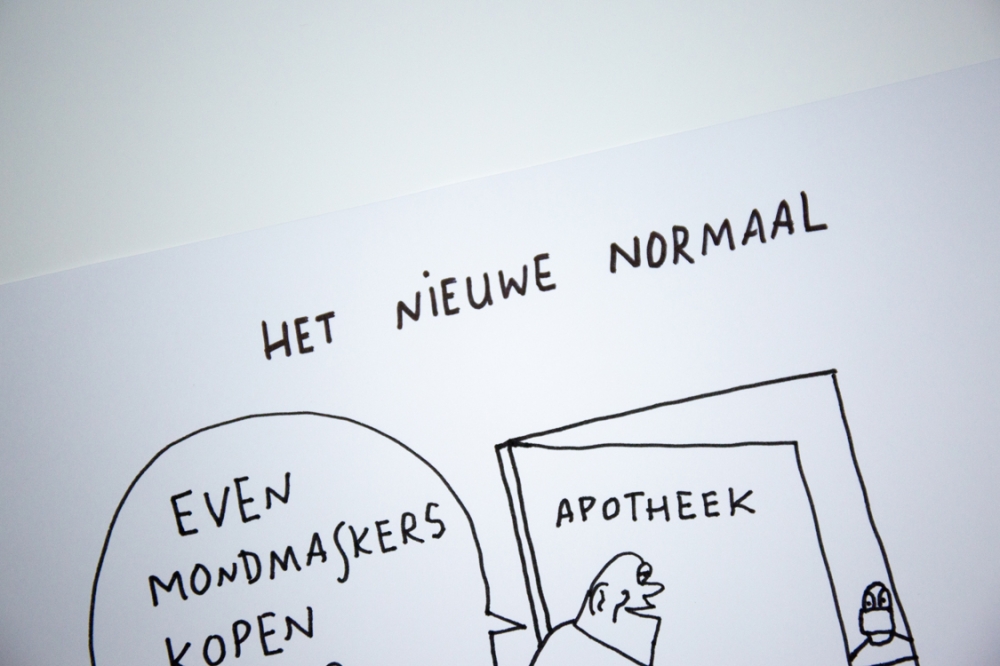 HET NIEUWE NORMAAL
EVEN
MONDMASKERS
KOPEN
APOTHEEK